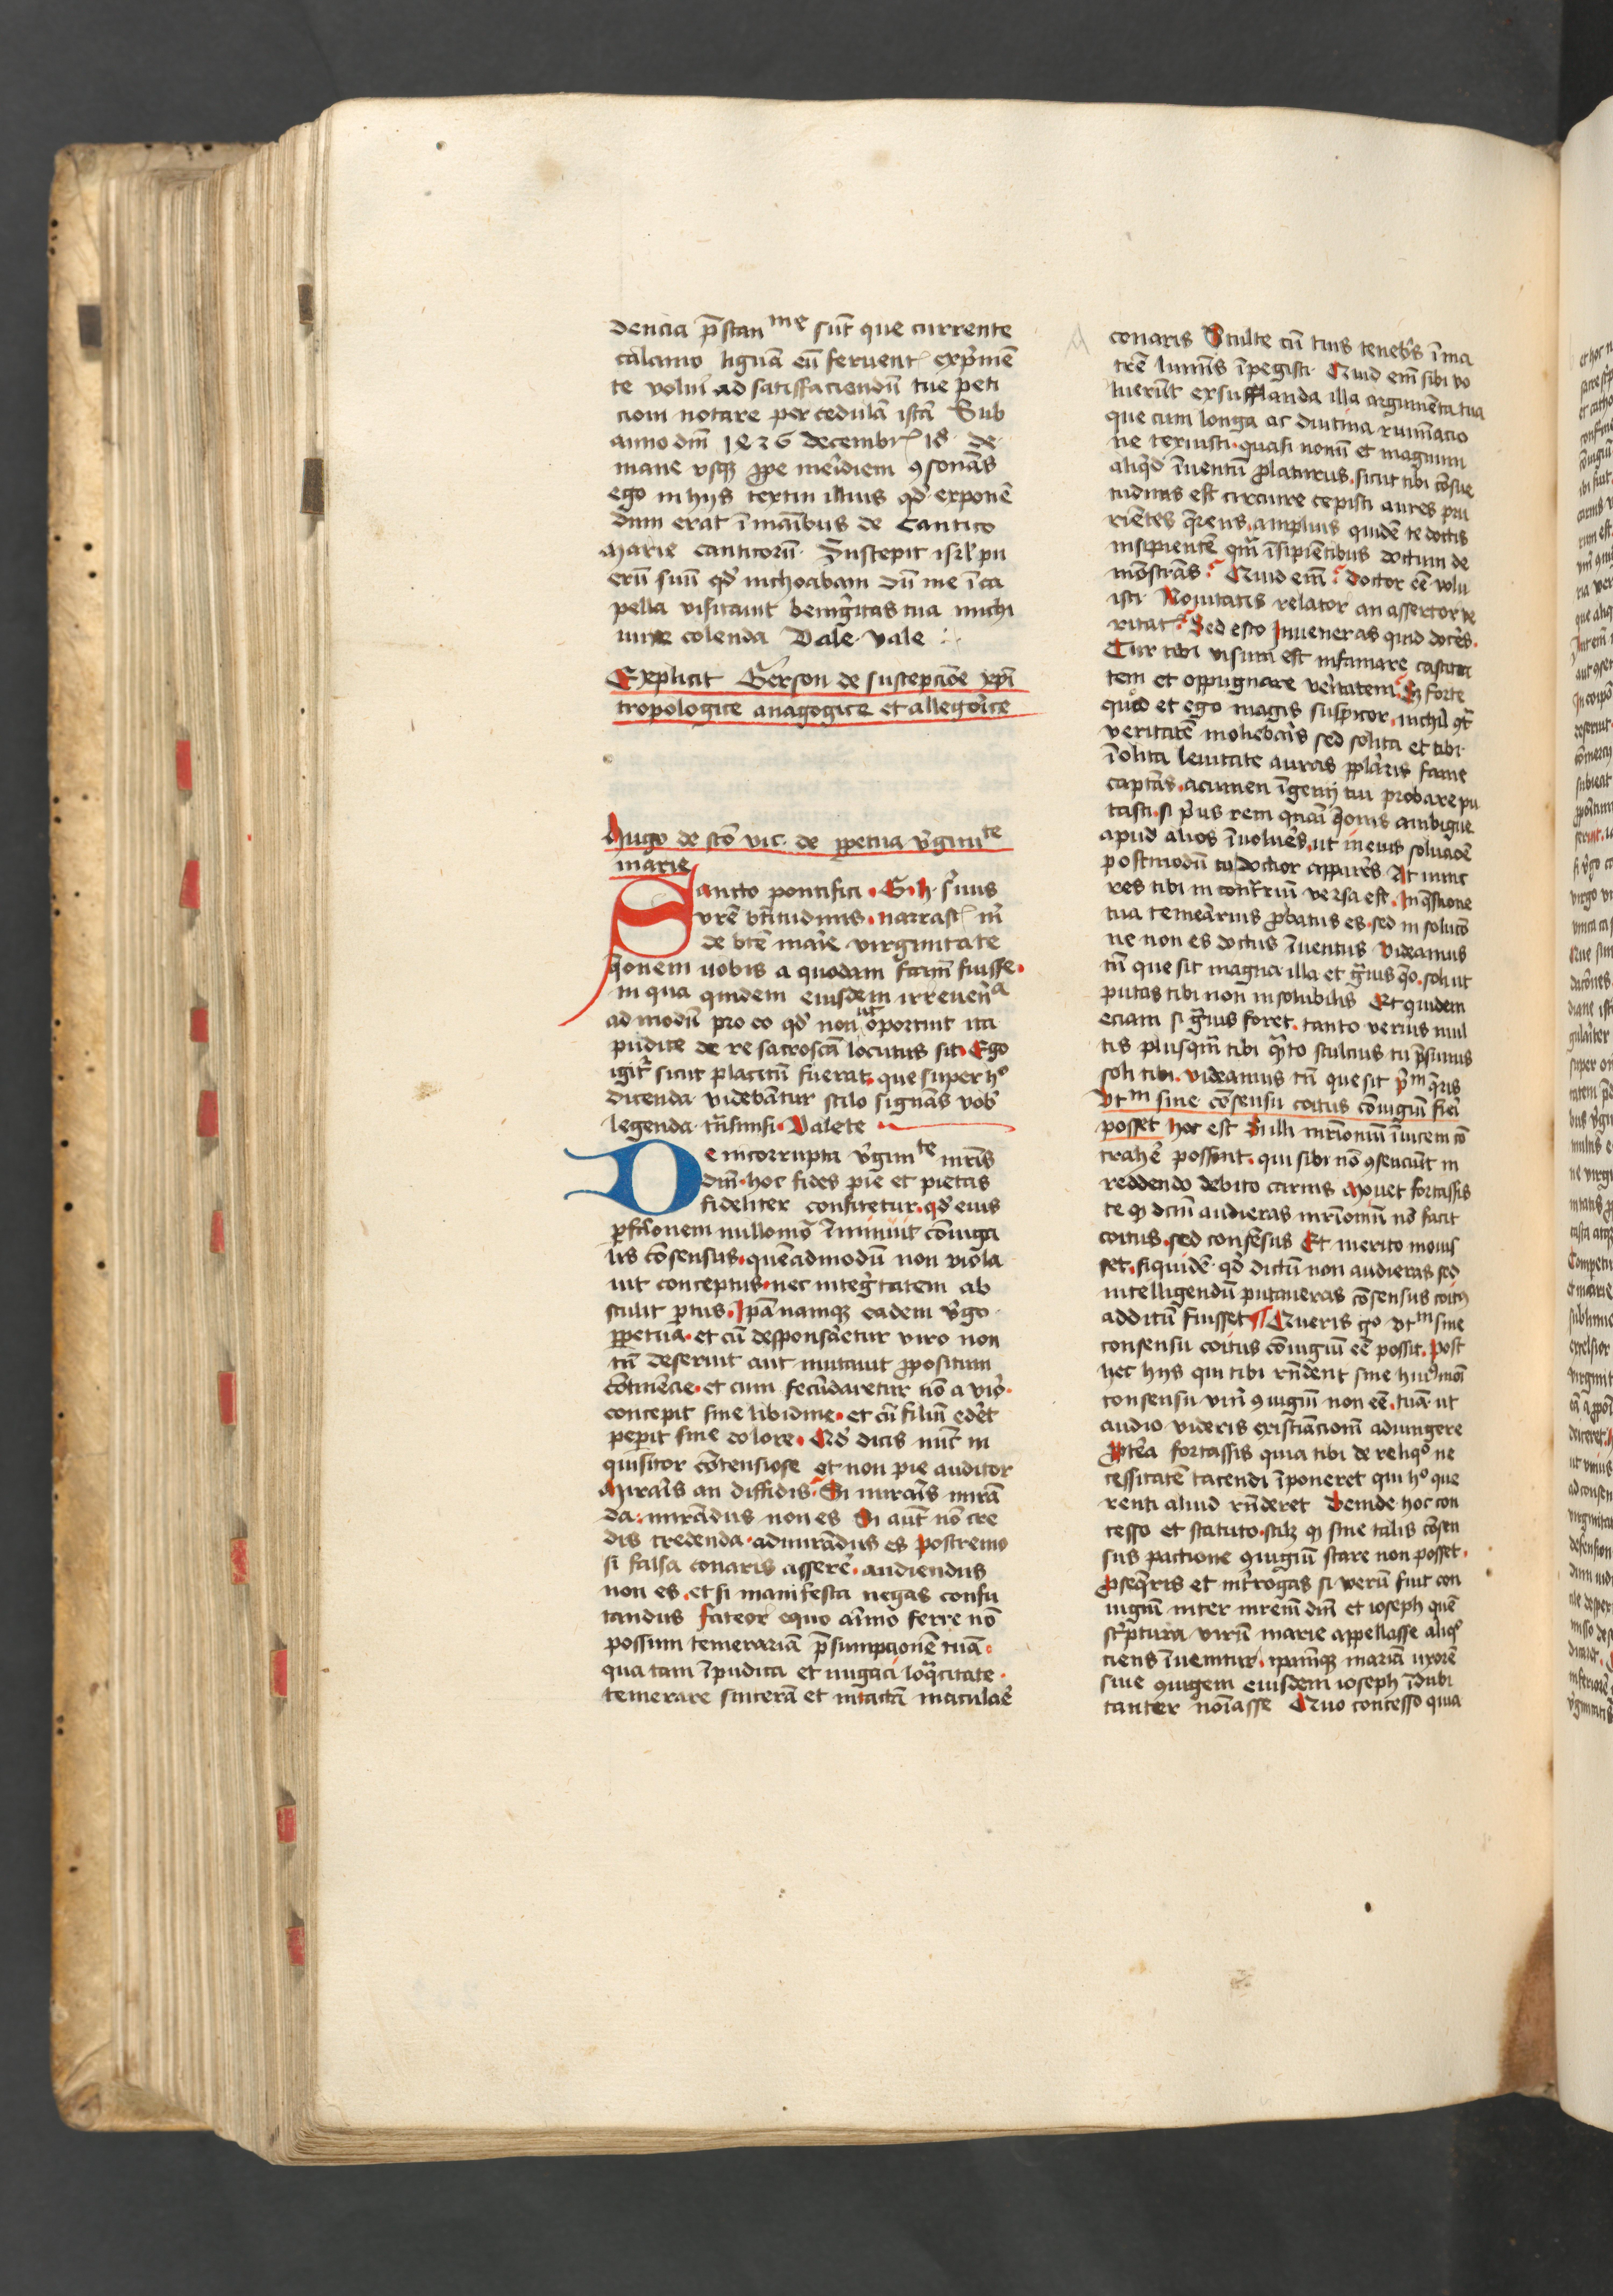 dencia p̄stan^me sūt que currente
calamo liguā cū feruent̄ exp̄mē
te volui ad satisfaciendū tue peti
ciom notare per cedulā istā Sub
anno dn̄i 1ꝝ26 decembr̄ 18 de
mane vsqꝫ ꝓpe meridiem ꝯsonās
ego in hijs textui illius qd̄ exponē
dum erat ī manibus de Cantico
Marie canticorū. Suscepit isrl̄ pu
erū suū qd̄ inchoabam dū me ī ca
pella visitauit benig̅itas tua michi
iure colenda Vale. vale :.
Explicit Gerson de suscepcōe xp̄i
tropologice anagogice et allegorice
Hugo de sc̄o vic. de ꝑpetua v̄ginit^te
marie
Sancto pontifici. G. h. s̄uus
vr̄e btītudinis. narrast̄ m̄
de btē marie virginitate
q̄onem uobis a quodam fcām fuisse.
in qua quidem eiusdem irreuēn^a
ad modū pro eo qd̄ non ut oportuit ita
pudice de re sacroscā locutus sit. Ego
igit̄ sicut placitū fuerat. que super h^o
dicenda videbantur stilo signās vob̄
legenda trāsmisi. Valete
De incorrupta v̄ginit^te mr̄is
dn̄i. hoc fides pie et pietas
fideliter confitetur. qd̄ eius
ꝑfc̄ionem nullomō īminuit cōiuga
lis cōsensus. quēadmodū non viola
uit conceptus. nec integ̅tatem ab
stulit ꝑtus. Ip̄a namqꝫ eadem v̄go
ꝑpetua. et cū desponsaretur viro non
tn̄ deseruit aut mutauit ꝓpositum
cōtinēcie. et cum fecūdaretur nō a viro.
concepit sine libidine. et cū filiū ederet
peperit sine dolore. Qd̄ dicis nūc in
quisitor cōtensiose et non pie auditor
Miraris an diffidis. Si miraris mirā
da. mirādus non es Si aut̄ nō cre
dis credenda. admirādus es Postremo
si falsa conaris asserē. audiendus
non es. et si manifesta negas confu
tandus fateor equo aīmo ferre nō
possum temerariā p̄sumpcionē tuā.
qua tam īpudica et nugaci loqᵃcitate.
temerare sincerā et intactā maculaē
conaris Stulte cū tuis tenebris ī ma
trē luminis īpegisti. Quid em̄ sibi vo
luerūt exsufflanda illa argumēta tua
que cum longa ac diutina ruminacio
ne texuisti. quasi nouū et magnum
aliq̄d īuentū ꝓlaturus. sicut tibi cōsue
tudinis est circuire cepisti aures pru
riētes q̄rens. amplius quidē te doctis
insipientē qm̄ īsipiētibus doctum de
mōstrās. Quid em̄. Doctor eē volu
isti Nouitatis relator an assertor ve
ritat̄. Sed esto Inueneras quid docēs.
Cur tibi visum est infamare castita
tem et oppugnare veritatem. Si forte
quod et ego magis suspicor. nichil ꝯt̄
veritatē moliebaris sed solita et tibi.
īolita leuitate auras ꝓplaris fame
captās. acumen īgenij tui probare pu
tasti. si p̄us rem q̄onis ambigue
apud alios īuolues. ut in eius soluacē
postmodū tu doctior appares At nunc
res tibi in contrariū versa est. In q̄stione
tua temerarius ꝓbatus es. sed in solucō
ne non es doctus īuentus Videamus
tn̄ que sit magna illa et g̅uis q̄o. soli ut
putas tibi non insolubilis Et quidem
eciam si g̅uis foret. tanto verius mul
tis plusqm̄ tibi quanto stulcius tu p̄sumis
soli tibi. videamus tn̄ que sit p̄m q̄ris
Vt^m sine cōsensu coitus cōiugiū fieri
posset hoc est Si illi mr̄ioniū īuicem cō
trahē possint. qui sibi nō ꝯsenciūt in
reddendo debito carnis Mouet fortassis
te qꝫ dcm̄ audieras mr̄ioniū nō facit
coitus. sed consēsus Et merito mouis
set. siquidē qd̄ dictū non audieras sed
intelligendū putaueras cōsensus coitꝯ
additū fuisset Queris g^o vt^m sine
consensu coitus cōiugiū eē possit. Post
hec hijs qui tibi rn̄dent sine huiꝯmōi
consensu viri ꝯiugiū non eē. tuā ut
audio videris existiācionē adiungere
ꝓterea fortassis quia tibi de reliqᵒ ne
cessitatē tacendi īponeret qui h^o que
renti aliud rn̄deret Deinde hoc con
cesso et statuto. scilꝫ qꝫ sine talis cōsen
sus pactione ꝯiugiū stare non posset.
ꝓseq̄ris et int̄rogas si verū fuit con
iugiū inter mr̄em dn̄i et ioseph quē
sc̄ptura virū marie appellasse aliqᵒ
ciens īuenitur. ip̄amqꝫ mariā uxorē
siue ꝯiugem eiusdem ioseph īdubi
tanter noīasse Quo concesso quia